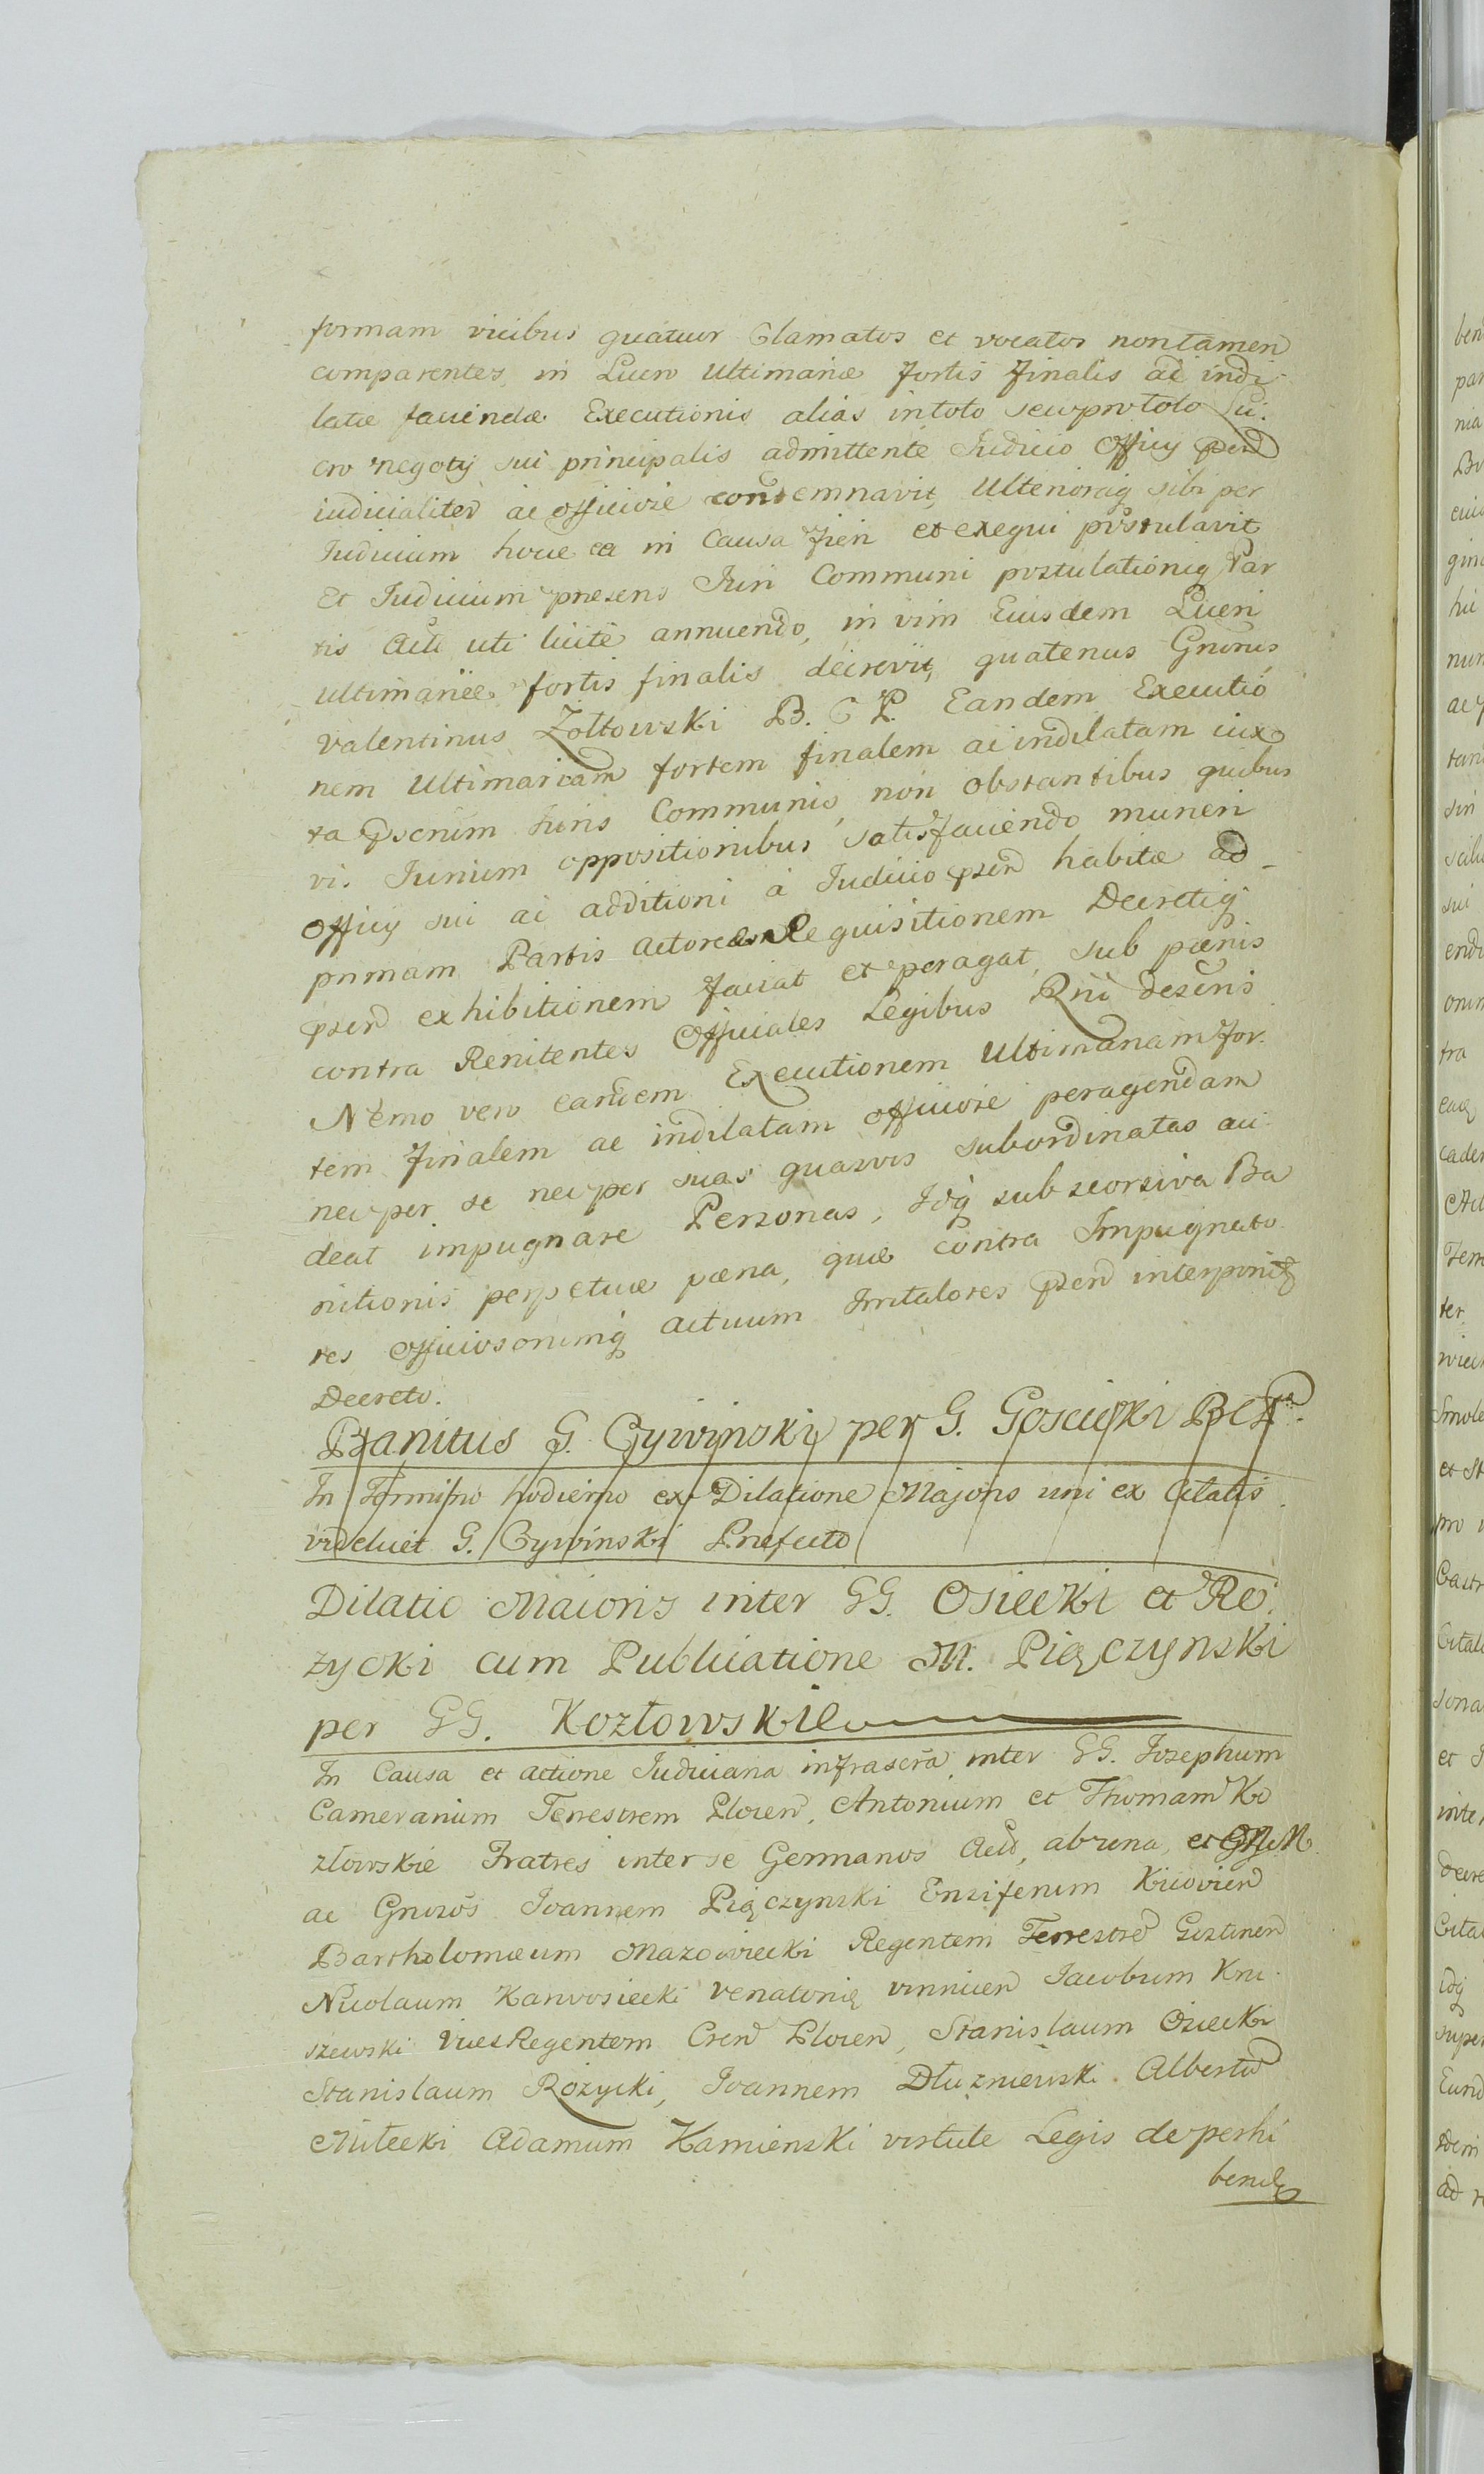 formam vicibus quatuor Clamatos et vocatos non tamen
comparentes, in Lucro Ultimariæ fortis finalis ac indi
latæ faciendæ Executionis alias in toto seu pro toto Lu.
cro negotij sui principalis admittente Iudicio Officij pnd
iudicialiter ac officiose condemnavit, Ulteriorāq sibi per
Iudicium hocce ea in Causa fieri et exequi postulavit
Et Iudicium præsens Iuri Communi postulationiq Par
tis Acti uti licitè annuendo, in vim Eiusdem Lucri
Ultimariæ fortis finalis decrevit, quatenus Gnrsus
Valentinus Żółtowski B. C. P. Eandem Executio
nem Ultimariam fortem finalem ac indilatam iux
ta Pscrum Iuris Communis, non obstantibus quibus
vis Iurium oppositionibus satisfaciendo muneri
Officij sui ac additioni à Iudicio psnd habitæ ad
primam Partis Actoreæ Requisitionem Decretiq
psnd exhibitionem faciat et peragat, sub pænis
contra Renitentes Officiales Legibus Rni descris
Nemo vero eandem Executionem Ultimariam for.
tem finalem ac indilatam officiose peragendam
nec per se nec per suas quasvis subordinatas au
deat impugnare Personas, Idq sub seorsiva Ba
nitionis perpetuæ pæna, quæ contra Impugnato
res Officiosorumq actuum Irritatores psnd interponitr
Decreto.
Banitus G. Cywinski per G. Gosciski BCP.
In Termino hodierno ex Dilatione Majoris uni ex Citatis
videlicet G. Cywinski Præfecto
Dilatio Maioris inter GG. Osiecki et Ro
życki cum Publicatione M. Piączynski
per GG. Kozłowskie
In Causa et actione Iudiciaria infrascra inter GG. Iosephum
Camerarium Terrestrem Plocen, Antonium et Thomam Ko
złowskie Fratres inter se Germanos Acto, ab una, et
ac Gnrosos Ioannem Piączynski Ensiferum Kiiovien
Bartholomæum Mazowiecki Regentem Terrestre Gostinen
Nicolaum Karwosiecki Venatorię vinnicen Iacobum Kru
szewski ViceRegentem Cren Plocen, Stanislaum Osiecki
Stanislaum Rożycki, Ioannem Dłużniewski Albertu
Miłecki Adamum Kamienski virtute Legis de perhi
bendis